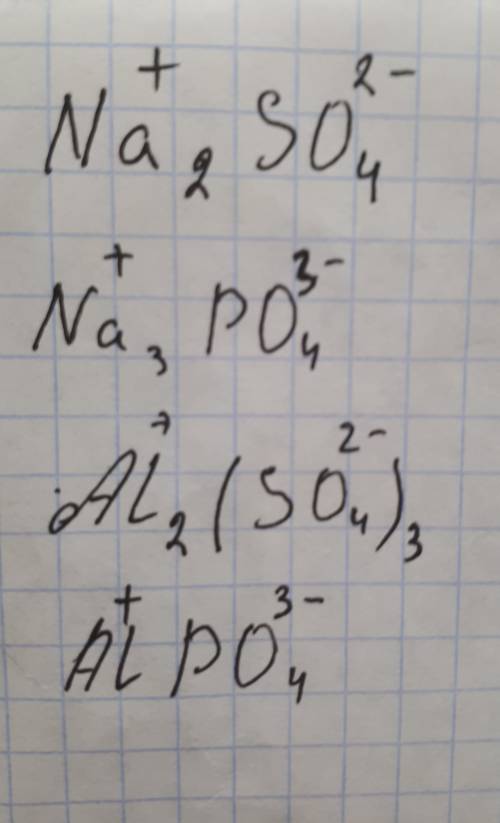 Na⁺₂ SO₄²⁻
Na⁺₃ PO₄³⁻
Al⁺₂(SO₄²⁻)₃
Al⁺PO₄³⁻